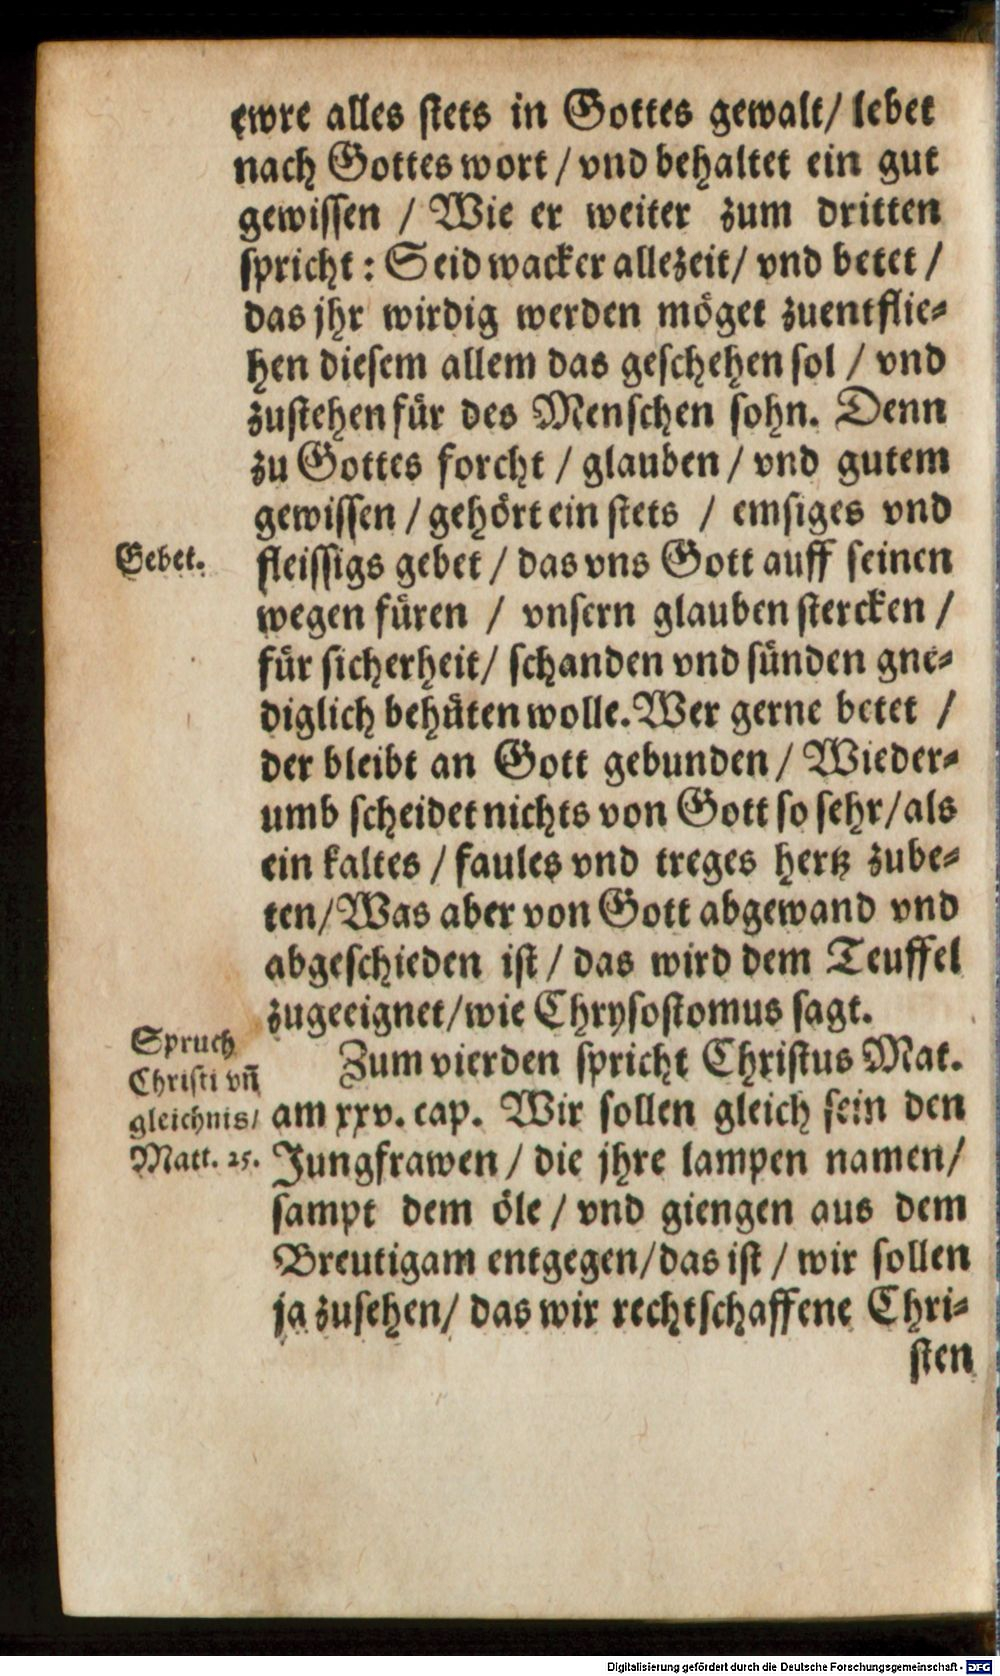 ewre alles stets in Gottes gewalt/ lebet
nach Gottes wort / vnd behaltet ein gut
gewissen / Wie er weiter zum dritten
spricht: Seid wacker allezeit/ vnd betet /
das jhr wirdig werden möget zuentflie-
hen diesem allem das geschehen sol / vnd
zustehen für des Menschen sohn. Denn
zu Gottes forcht / glauben / vnd gutem
gewissen / gehört ein stets / emsiges vnd
Gebet.
fleissigs gebet / das vns Gott auff seinen
wegen füren / vnsern glauben stercken /
für sicherheit/ schanden vnd sünden gne-
diglich behüten wolle. Wer gerne betet /
der bleibt an Gott gebunden / Wieder-
umb scheidet nichts von Gott so sehr/ als
ein kaltes / faules vnd treges hertz zube-
ten/ Was aber von Gott abgewand vnd
abgeschieden ist / das wird dem Teuffel
zugeeignet/ wie Chrysostomus sagt.
Spruch
Christi vñ
gleichnis/
Matt. 25.
Zum vierden spricht Christus Mat.
am xxv. cap. Wir sollen gleich sein den
Jungfrawen / die jhre lampen namen/
sampt dem öle / vnd giengen aus dem
Breutigam entgegen/ das ist / wir sollen
ja zusehen/ das wir rechtschaffene Chri-
sten
Digitalisierung gefördert durch die Deutsche Forschungsgemeinschaft - DFG